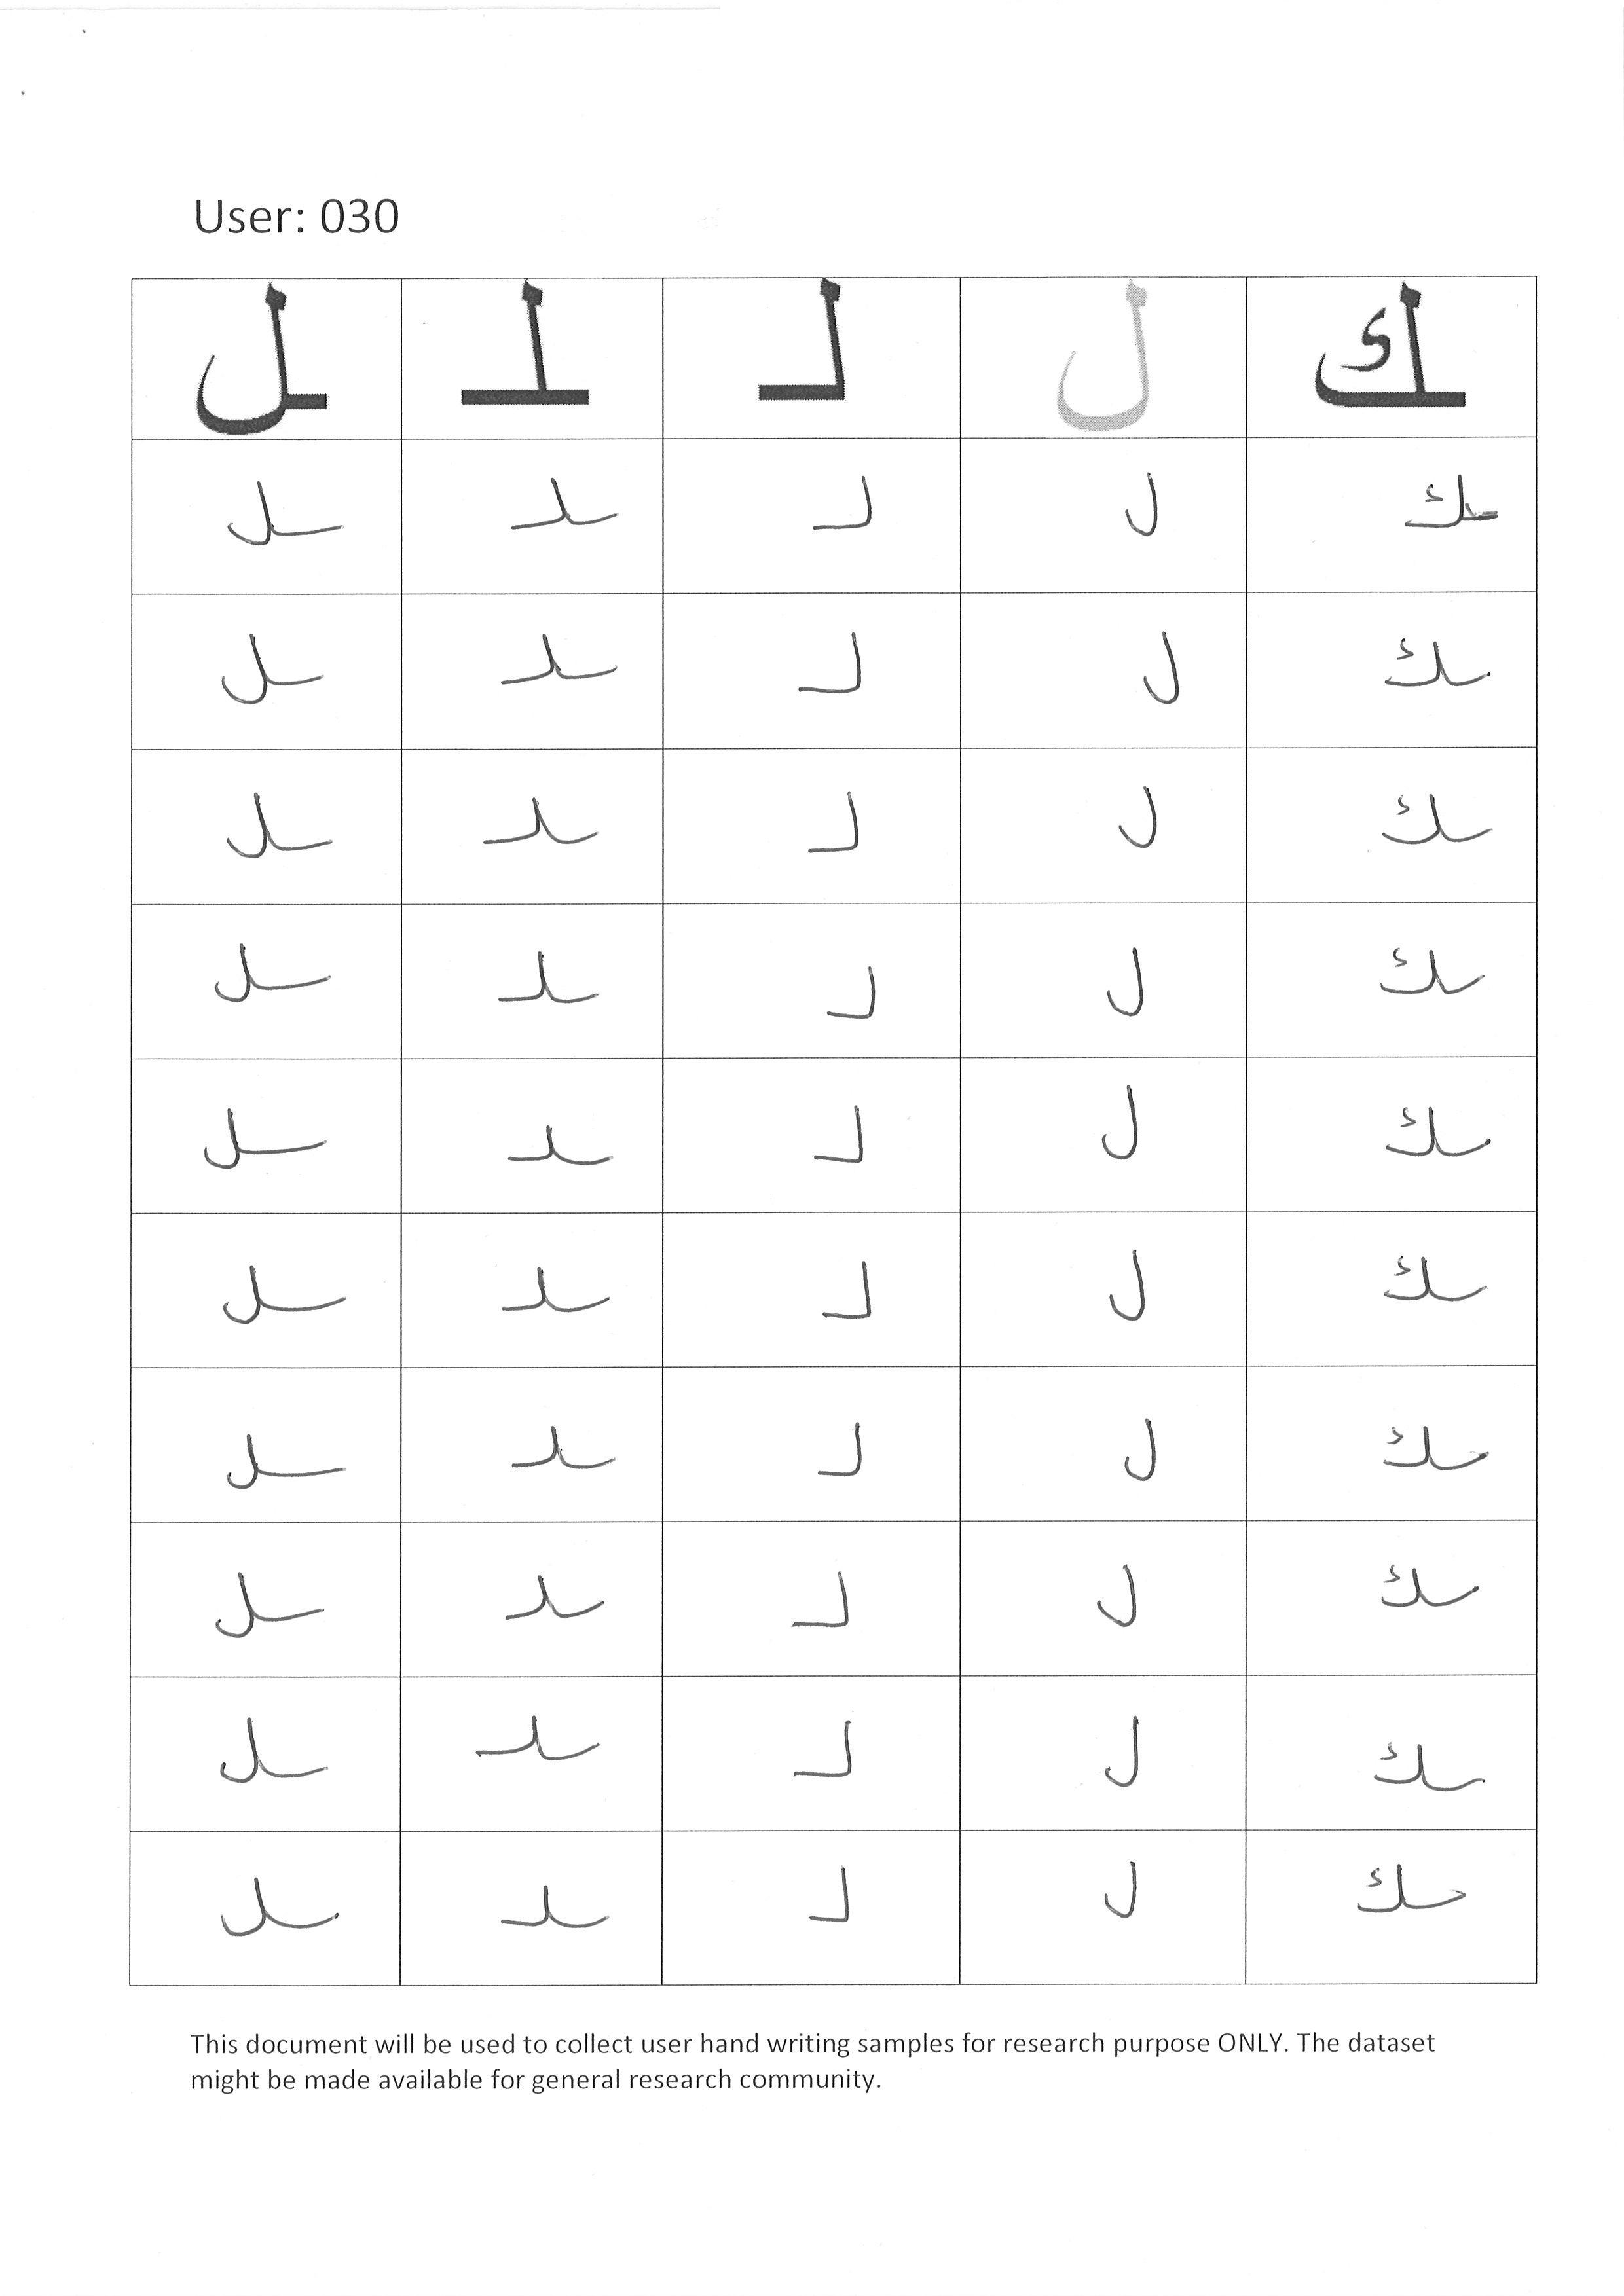 User: 030
ـل ـلـ لـ ل ـك
ـل ـلـ لـ ل ـك
ـل ـلـ لـ ل ـك
ـل ـلـ لـ ل ـك
ـل ـلـ لـ ل ـك
ـل ـلـ لـ ل ـك
ـل ـلـ لـ ل ـك
ـل ـلـ لـ ل ـك
ـل ـلـ لـ ل ـك
ـل ـلـ لـ ل ـك
ـل ـلـ لـ ل ـك
This document will be used to collect user hand writing samples for research purpose ONLY. The dataset
might be made available for general research community.